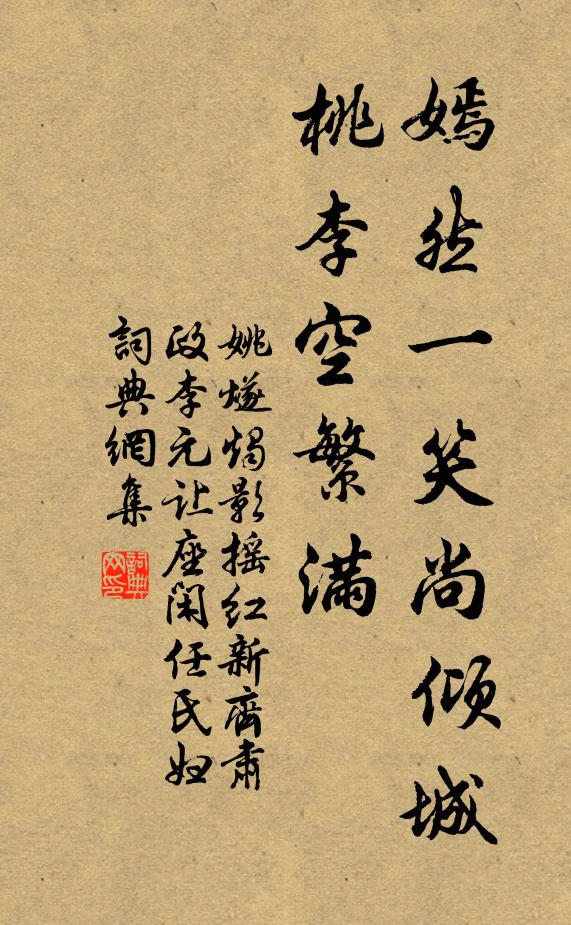 嫣然一笑尚倾城
桃李空繁满
姚燧烛影摇红新齐肃
政李元让座闲任氏妇
词典網集
詞典网印